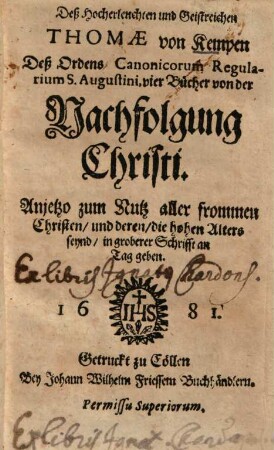 Deß Hocherleuchten und Geistreichen
THOMÆ von Kempen
Deß Ordens Canonicorum Regula-
rium S. Augustini, vier Bücher von der
Nachfolgung
Christi.
Anjetzo zum Nutz aller frommen
Christen/ und deren/ die hohen Alters
seynd/ in groberer Schrifft an
Tag geben.
Ex libris Ignatii
IHS
1681.
Getruckt zu Cöllen
Bey Johann Wilhelm Friessem Buchhändlern.
Permissu Superiorum.
Ex libris Ignat